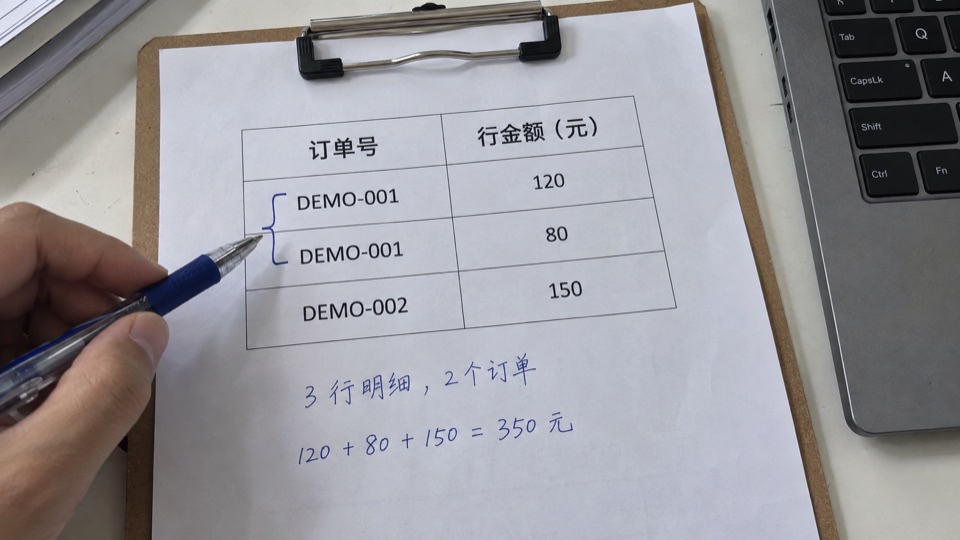 订单号 行金额（元）
DEMO-001 120
DEMO-001 80
DEMO-002 150
3 行明细，2个订单
120 + 80 + 150 = 350 元
K
Tab Q
CapsLk A
Shift
Ctrl Fn